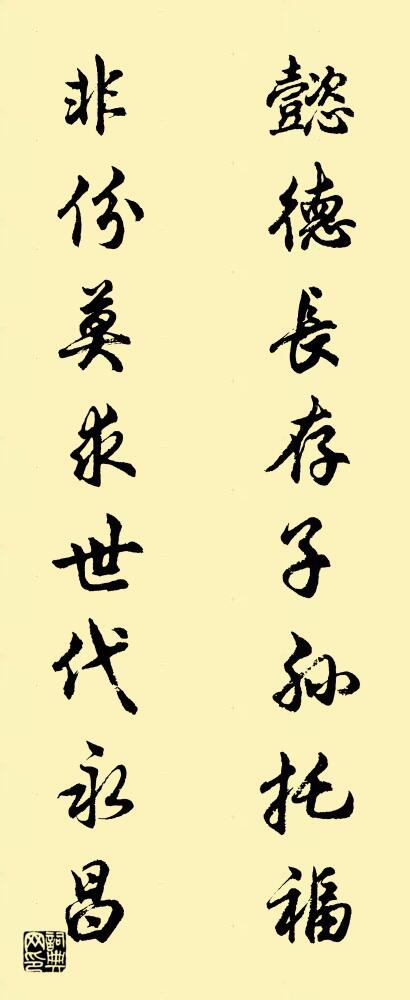 懿德長存子孙托福
非份莫求世代永昌
詞典网印